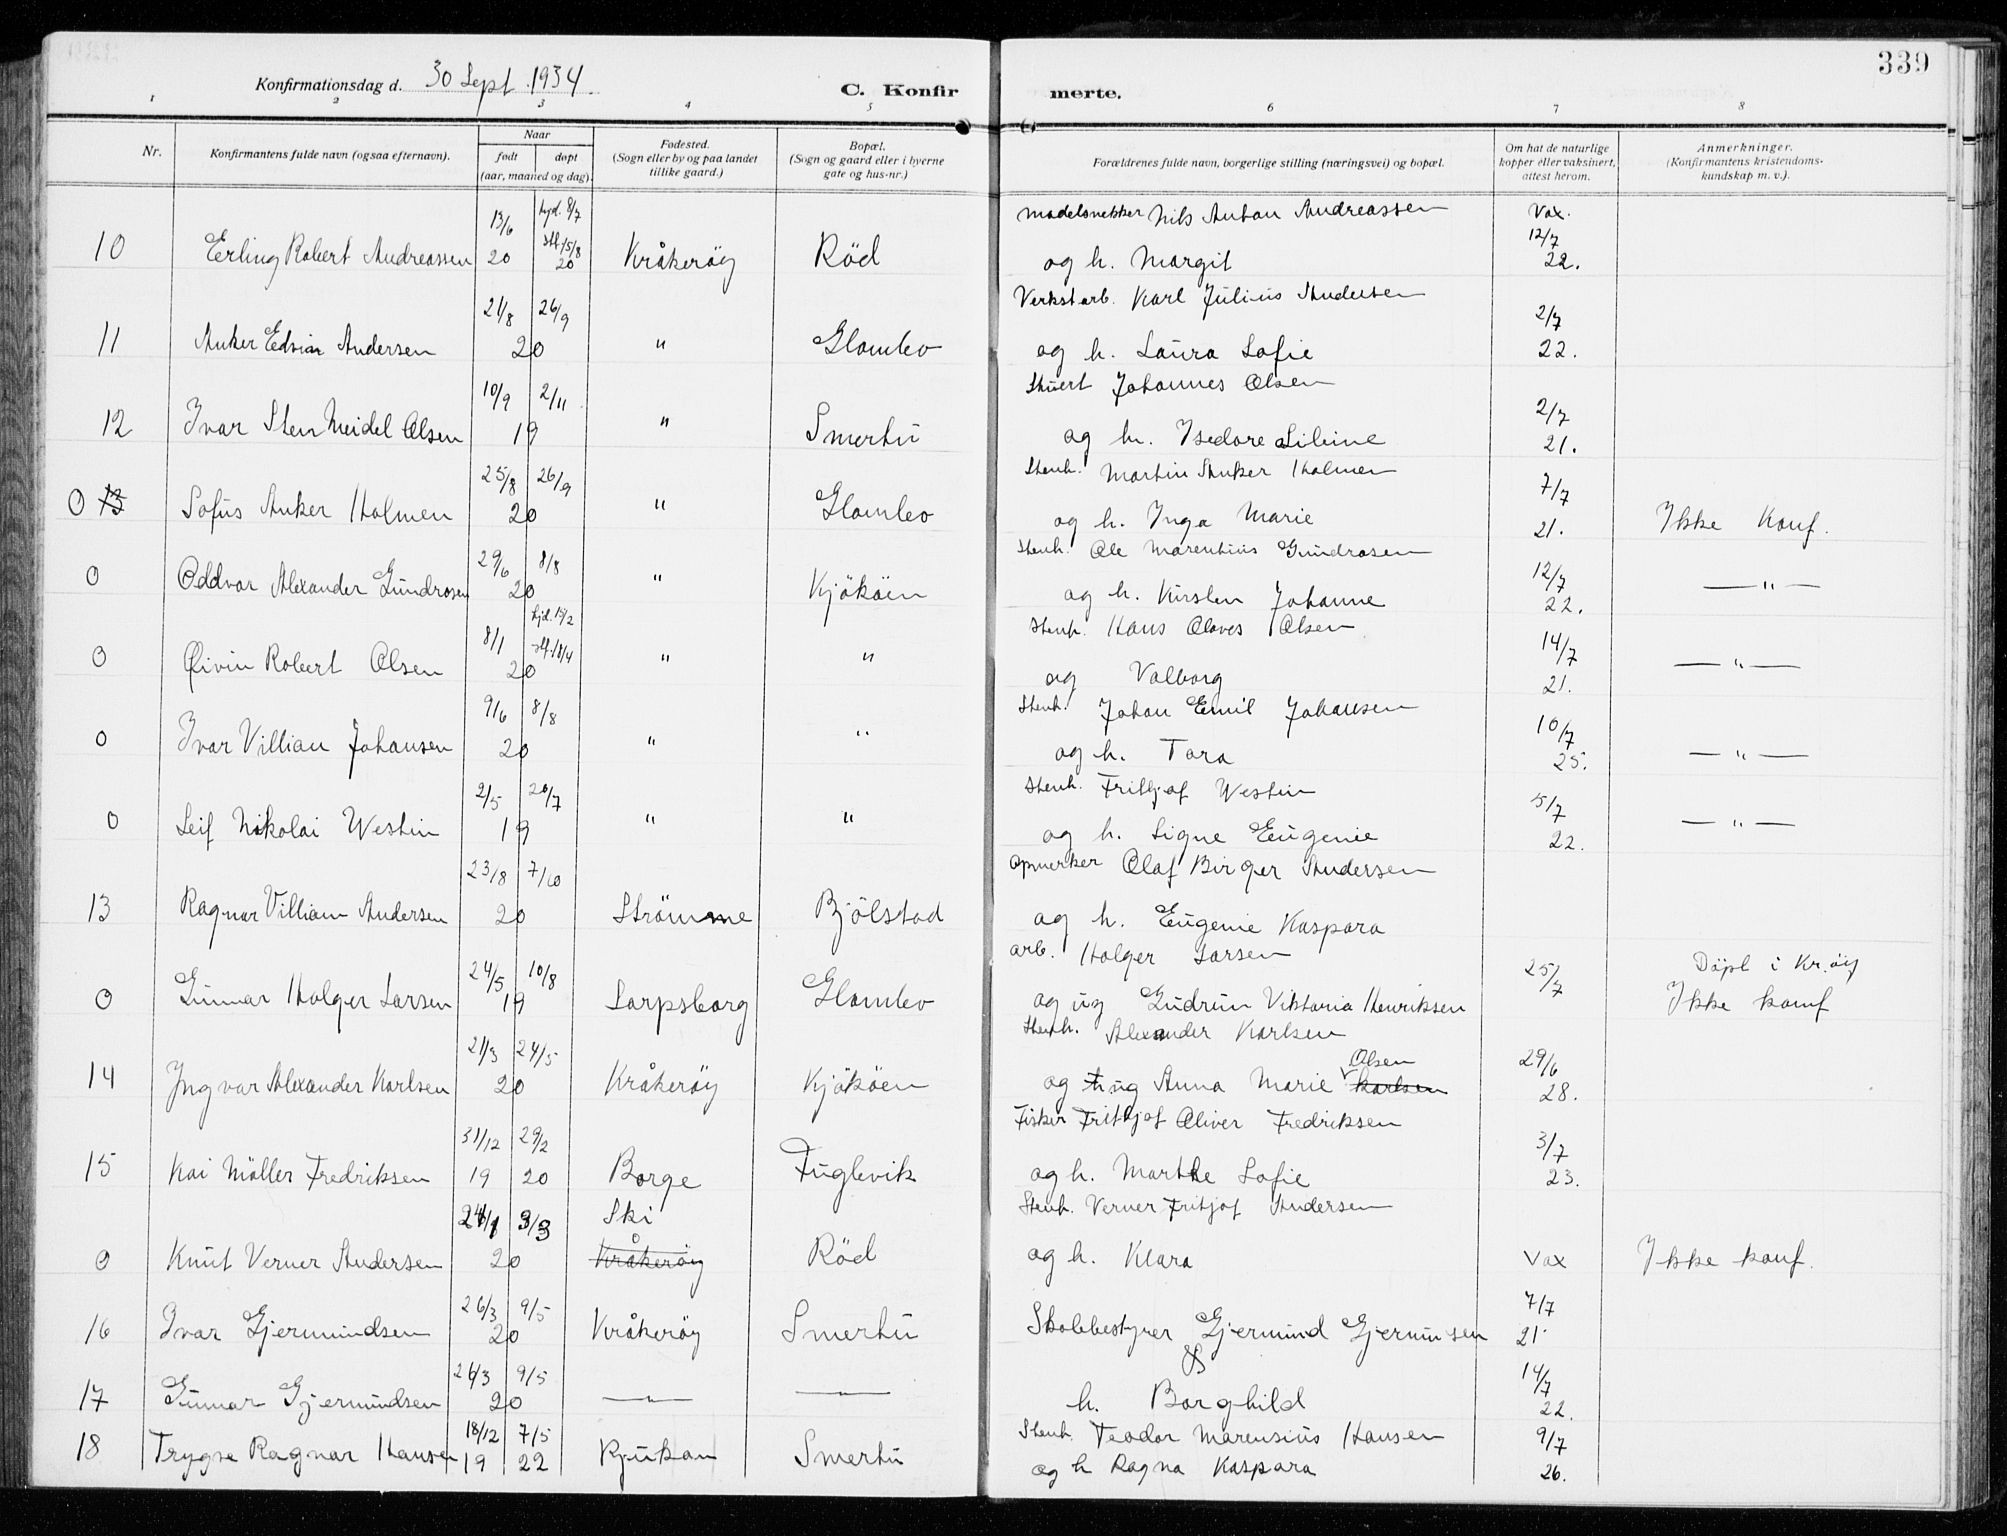 339
Konfirmationsdag d. 30 Sept. 1934.
C. Konfirmerte.
1 2 3 4 5 6 7 8
Nr.
Konfirmantens fulde navn (ogsaa efternavn).
Naar
født døpt
(aar, maaned og dag).
Fødested.
(Sogn eller by og paa landet
tillike gaard.)
Bopæl.
(Sogn og gaard eller i byerne
gate og hus-nr.)
Forældrenes fulde navn, borgerlige stilling (næringsvei) og bopæl.
Om hat de naturlige
kopper eller vaksinert,
attest herom.
Anmerkninger.
(Konfirmantens kristendoms-
kundskap m. v.).
13/6 hjd. 8/7 modelsnekker Nils Anton Andreassen Vax.
stf. 15/8 12/7
10 Erling Robert Andreassen 20 20 Kråkeröy Röd og h. Margit 22.
21/8 26/9 Verkstarb. Karl Julius Andersen 2/7
11 Anker Edvin Andersen 20 " Glombo og h. Laura Sofie 22.
10/9 2/11 Stuert Johannes Olsen 2/7
12 Ivar Sten Meidel Olsen 19 " Smertu og h. Isedore Liline 21.
25/8 26/9 Stenh. Martin Anker Holmen 7/7
0 13 Sofus Anker Holmen 20 " Glombo og h. Inga Marie 21. Ikke Konf.
29/6 8/8 Stenh. Ole Marentius Gundrosen 12/7
0 Oddvar Alexander Gundrosen 20 " Kjököen og h. Kirsten Johanne 22. — " —
8/1 hjd. 15/2 stf. 18/4 Stenh. Hans Oloves Olsen 14/7
0 Øivin Robert Olsen 20 " " og Valborg 21. — " —
9/6 8/8 Stenh. Johan Emil Johansen 10/7
0 Ivar Villian Johansen 20 " " og h. Tora 25. — " —
2/5 20/7 Stenh. Frithjof Westin 5/7
0 Leif Nikolai Westin 19 " " og h. Signe Eugenie 22. — " —
23/8 7/10 Opmerker Olaf Birger Andersen
13 Ragnar Villiam Andersen 20 Strömme Bjölstad og h. Eugenie Kaspara
24/5 10/8 arb. Holger Larsen 25/7 Döpt i Kr.öy
0 Gunnar Holger Larsen 19 Sarpsborg Glombo og ug Gudrun Viktoria Henriksen Ikke konf
21/3 24/5 Stenh. Alexander Karlsen 29/6
Olsen
14 Ingvar Alexander Karlsen 20 Kråkeröy Kjököen og h. ug Anna Marie Karlsen 28.
31/12 29/2 Fisker Frithjof Oliver Fredriksen 3/7
15 Kai Möller Fredriksen 19 20 Borge Fuglevik og h. Marthe Sofie 23.
24/1 3/3 Ski Stenh. Verner Fritjof Andersen
0 Knut Verner Andersen 20 Kråkeröy Röd og h. Klara Vax Ikke konf.
26/3 9/5 7/7
16 Ivar Gjermundsen 20 Kråkeröy Smertu Skolebestyrer Gjermund Gjermunsen 21.
26/3 9/5 & 14/7
17 Gunnar Gjermundsen 20 — " — —— h. Borghild 22.
18/12 7/5 Stenh. Teodor Marensius Hansen 9/7
18 Trygve Ragnar Hansen 19 22 Rjukan Smertu og h Ragna Kaspara 26.